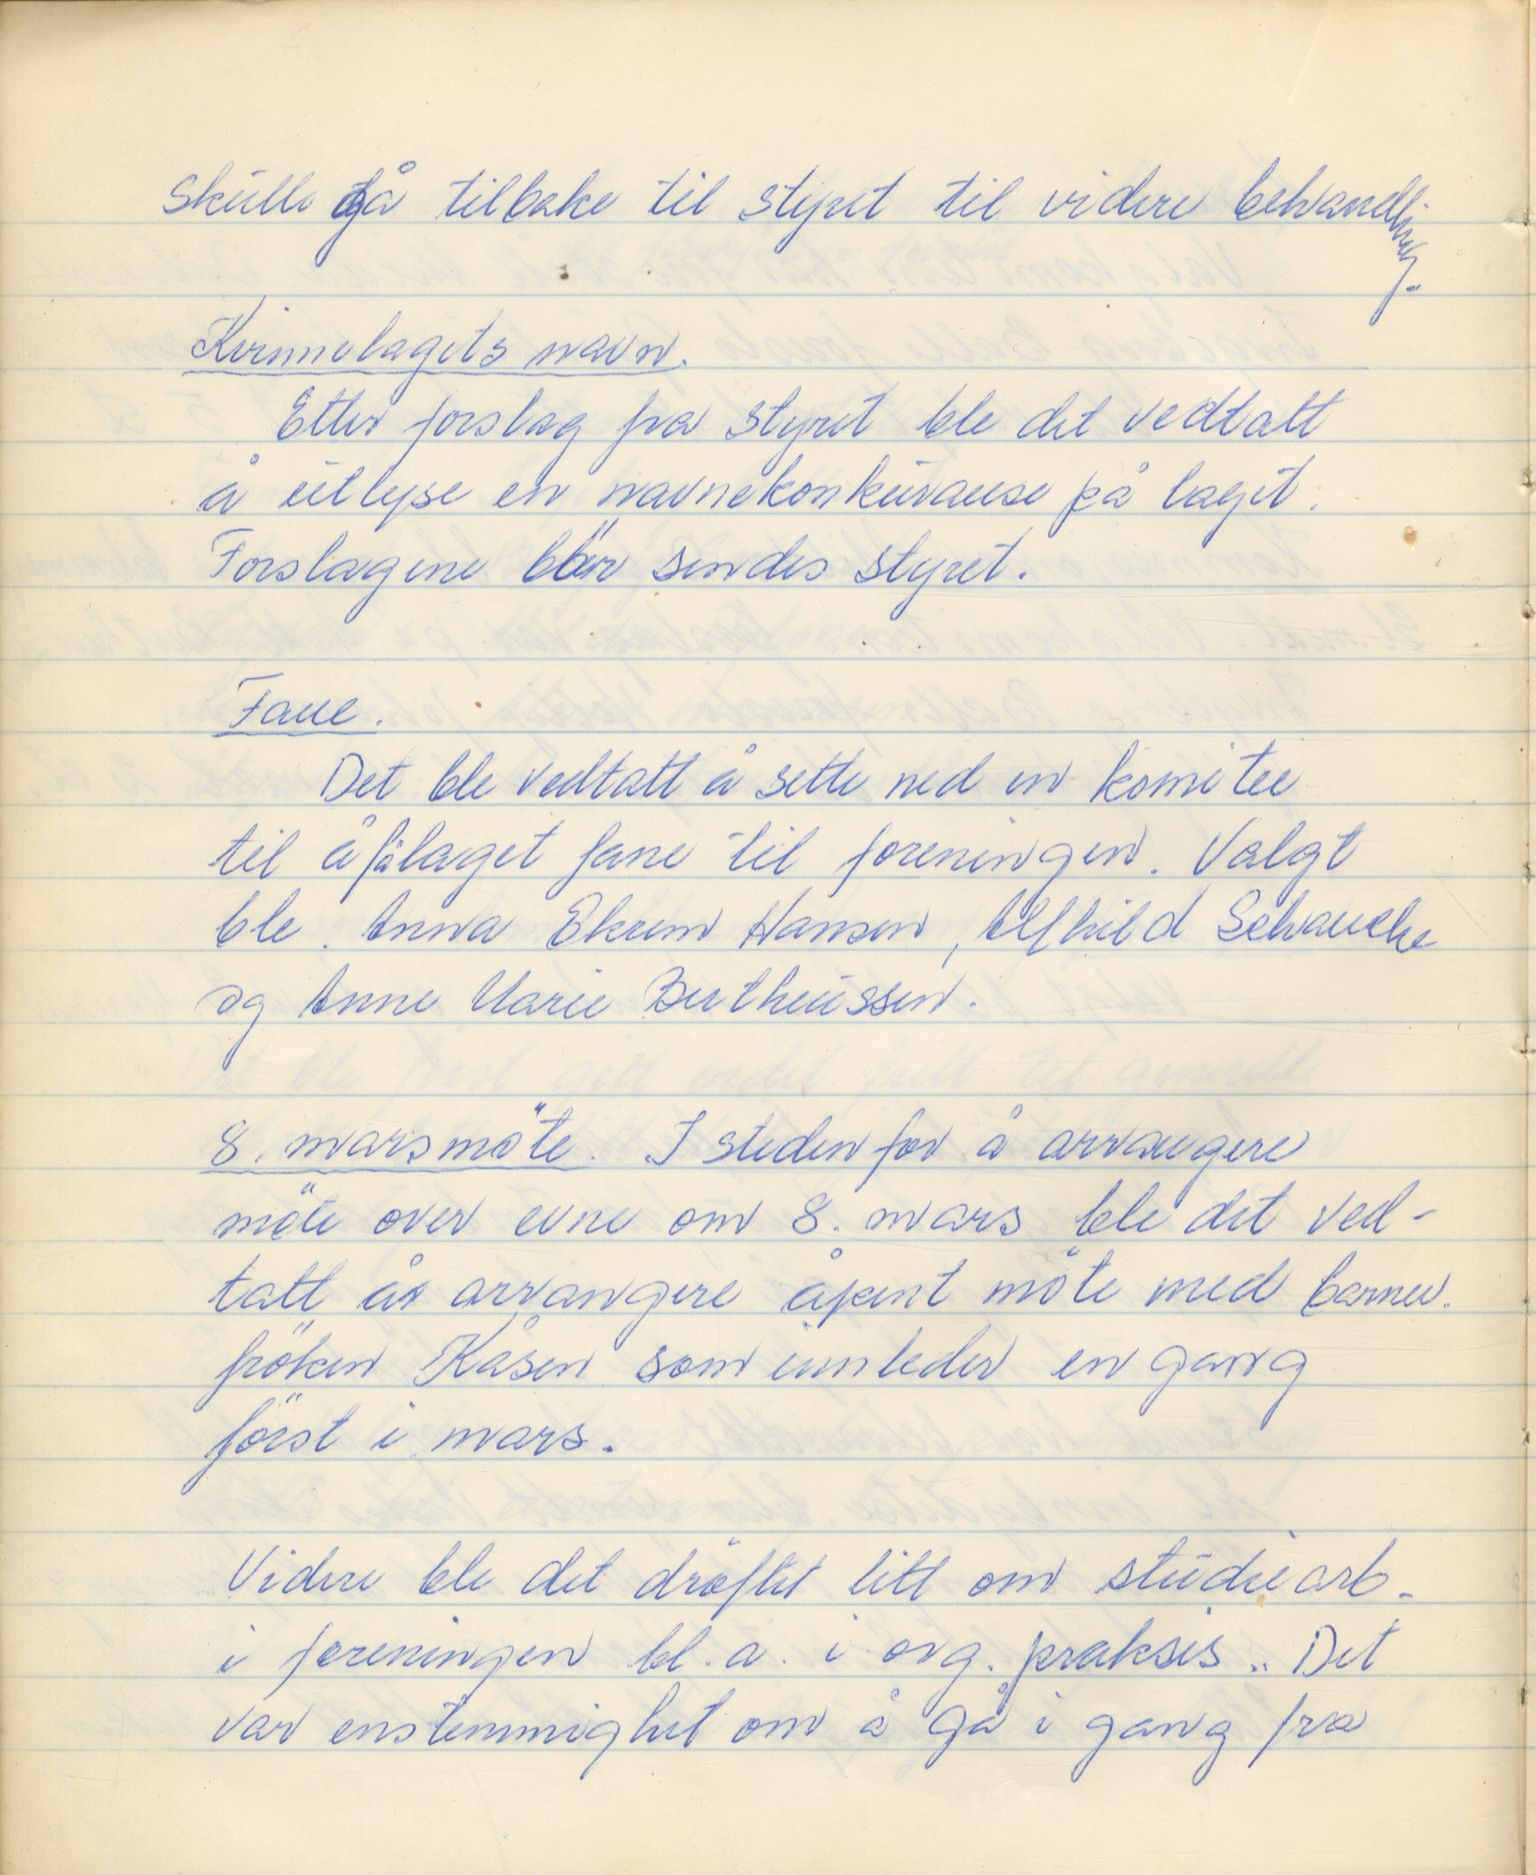 Skulle gå tilbake til styret til videre behandling.
Kvinnelagets navn.
Etter forslag fra styret ble det vedtatt
å utlyse en navnekonkuranse på laget.
Forslagene bör sendes styret.
Fane.
Det ble vedtatt å sette ned en komitee
til å få laget fane til foreningen. Valgt
ble. Anna Ekrem Hansen, Alfhild Schancke
og Anne Marie Bertheussen.
8. marsmöte. I steden for å arrangere
möte over evne om 8. mars ble det ved-
tatt å arrangere åpent möte med barnev.
fröken Kåsen som innleder en gang
först i mars.
Videre ble det dröftet litt om studiearb.
i foreningen bl.a. i org. praksis.. Det
var enstemmighet om å gå i gang fra